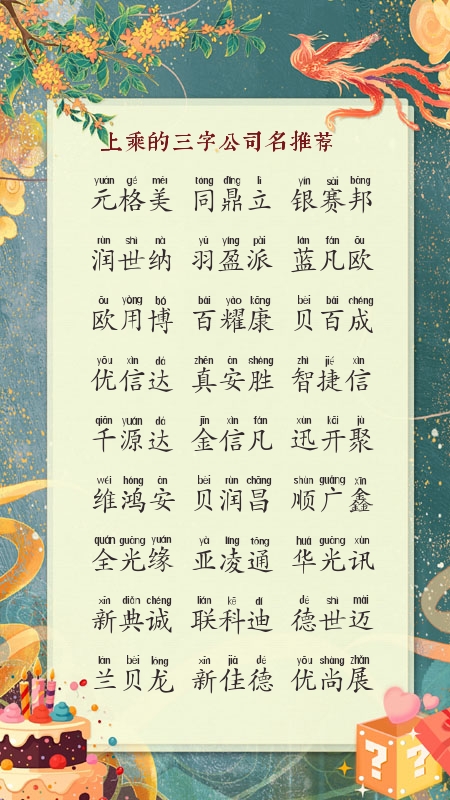 上乘的三字公司名推荐
yuán gé měi tóng dǐng lì yín sài bāng
元格美 同鼎立 银赛邦
rùn shì nà yǔ yíng pài lán fán ōu
润世纳 羽盈派 蓝凡欧
ōu yòng bó bǎi yào kāng bèi bǎi chéng
欧用博 百耀康 贝百成
yōu xìn dá zhēn ān shèng zhì jié xìn
优信达 真安胜 智捷信
qiān yuán dá jīn xìn fán xùn kāi jù
千源达 金信凡 迅开聚
wéi hóng ān bèi rùn chāng shùn guǎng xīn
维鸿安 贝润昌 顺广鑫
quán guāng yuán yà líng tōng huá guāng xùn
全光缘 亚凌通 华光讯
xīn diǎn chéng lián kē dí dé shì mài
新典诚 联科迪 德世迈
lán bèi lóng xīn jiā dé yōu shàng zhǎn
兰贝龙 新佳德 优尚展
? ?